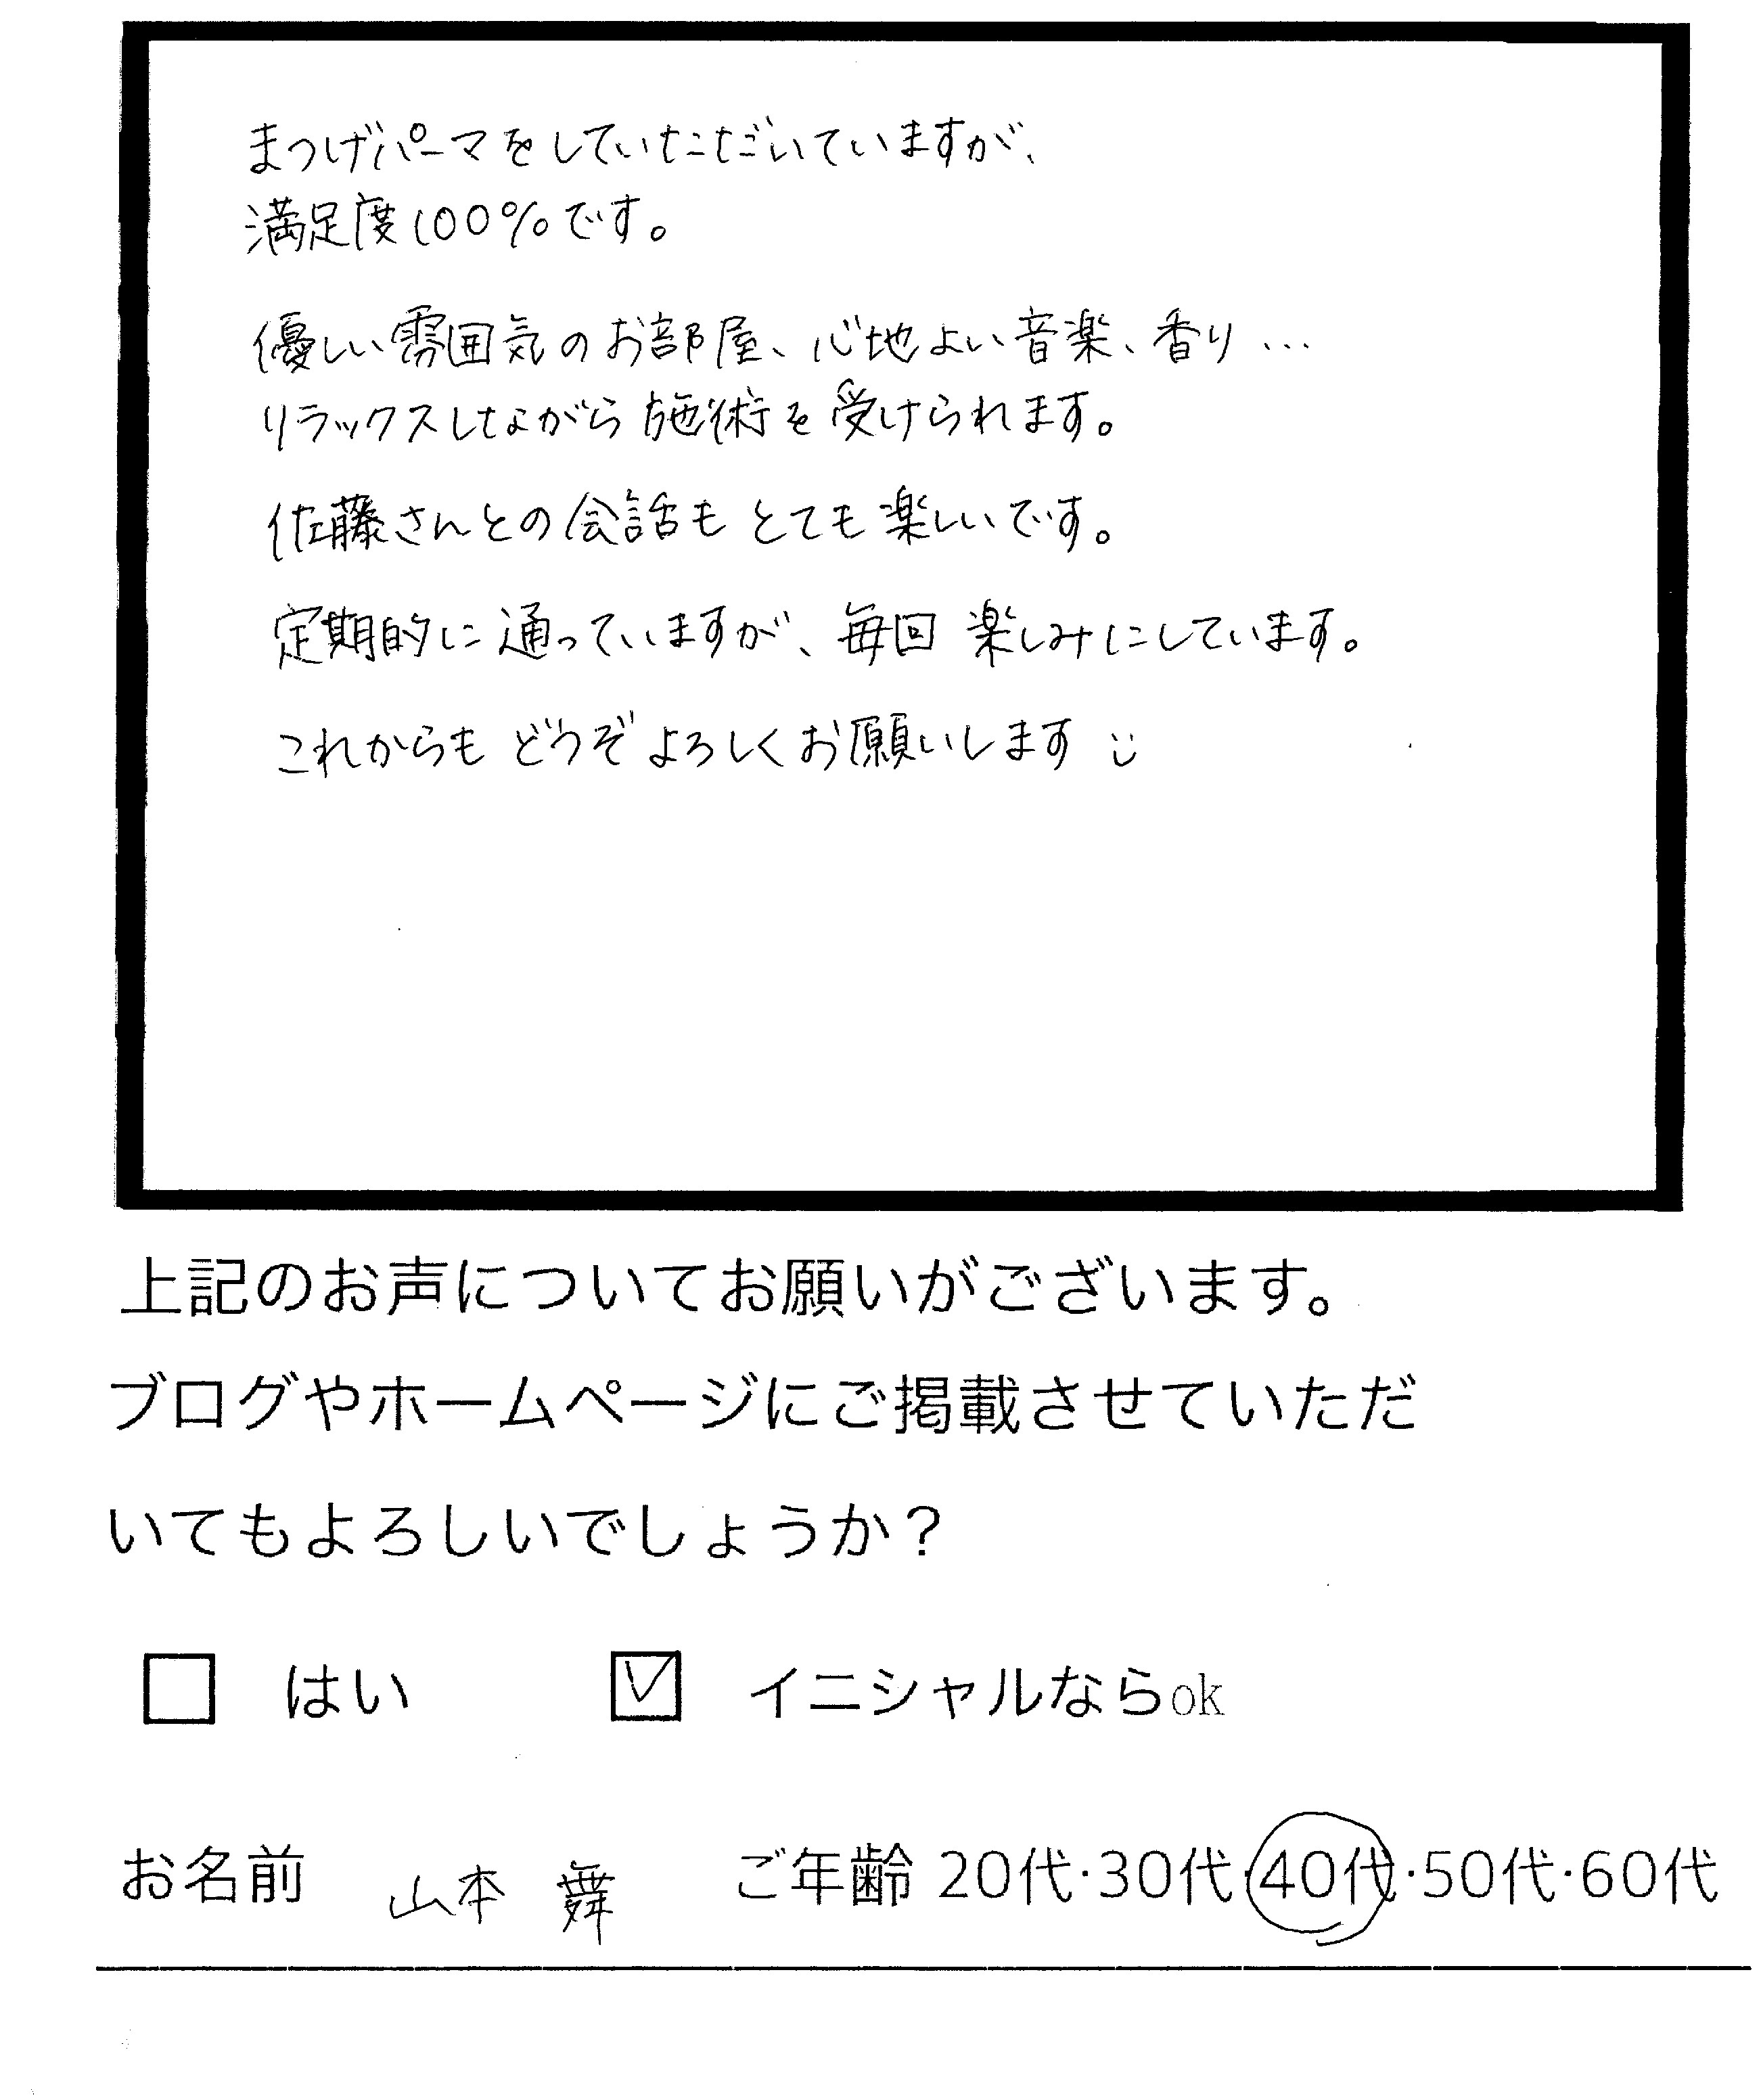 まつげパーマをしていただいていますが、
満足度100%です。
優しい雰囲気のお部屋、心地よい音楽、香り…
リラックスしながら施術を受けられます。
佐藤さんとの会話もとても楽しいです。
定期的に通っていますが、毎回楽しみにしています。
これからもどうぞよろしくお願いします
上記のお声についてお願いがございます。
ブログやホームページにご掲載させていただ
いてもよろしいでしょうか？
はい イニシャルならok
お名前 山本 舞 ご年齢 20代・30代・40代・50代・60代